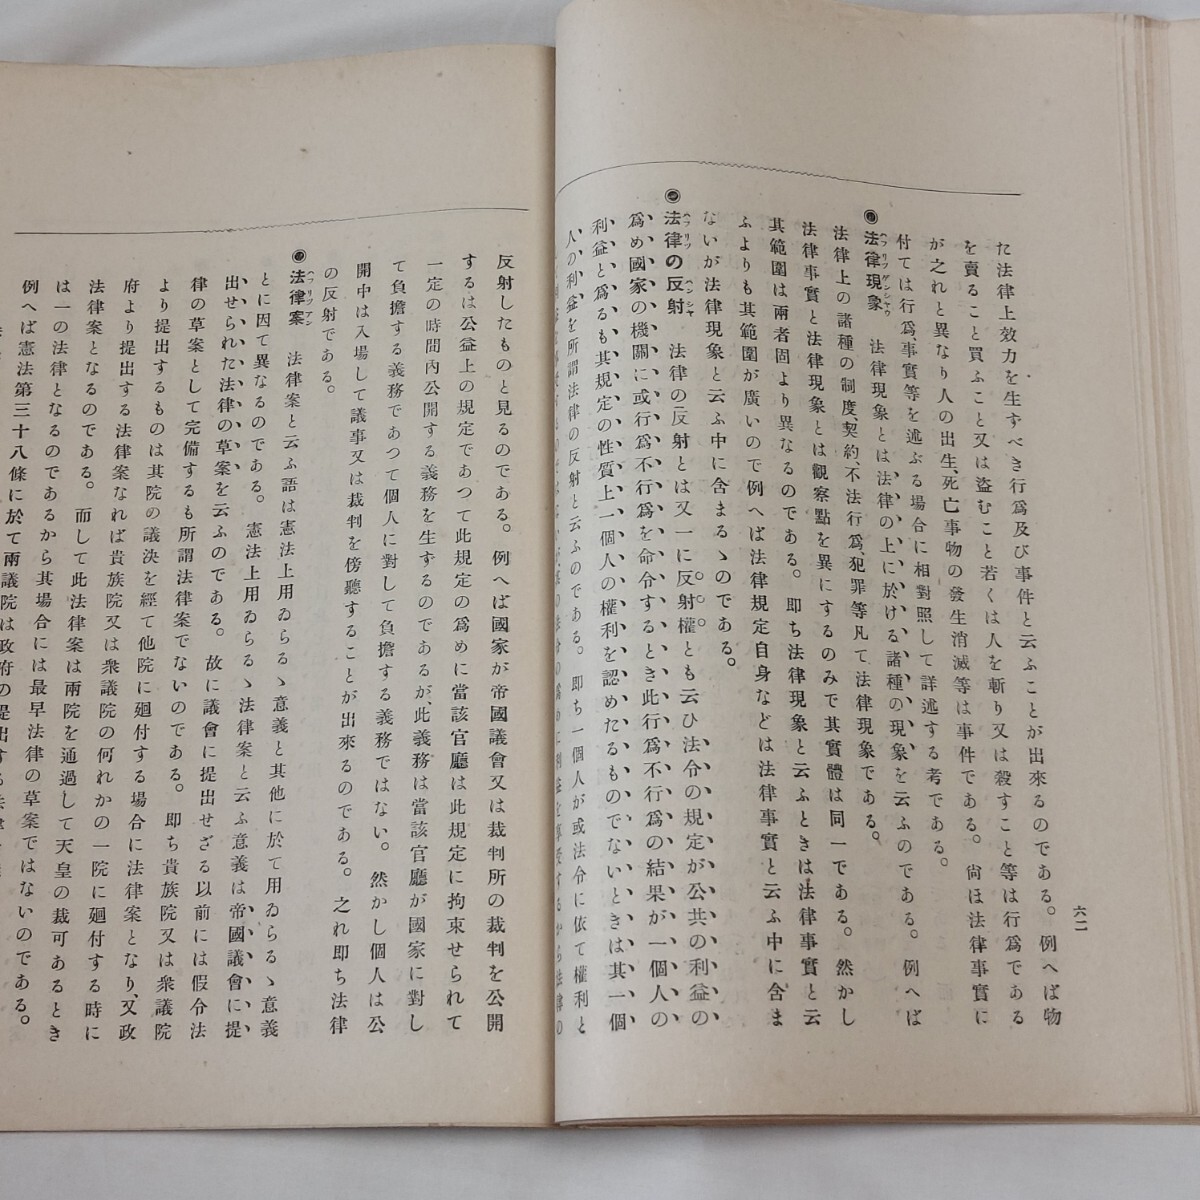 六二
た法律上效力を生すべき行爲及び事件と云ふことが出來るのである。例へば物
を賣ること買ふこと又は盜むこと若くは人を斬り又は殺すこと等は行爲である
が之れと異なり人の出生、死亡事物の發生消滅等は事件である。尙ほ法律事實に
付ては行爲、事實等を述ぶる場合に相對照して詳述する考である。
◉法律現象 法律現象とは法律の上に於ける諸種の現象を云ふのである。例へば
法律上の諸種の制度、契約、不法行爲、犯罪等凡て法律現象である。
法律事實と法律現象とは觀察點を異にするのみで其實體は同一である。然かし
其範圍は兩者固より異なるのである。即ち法律現象と云ふときは法律事實と云
ふよりも其範圍が廣いので例へば法律規定自身などは法律事實と云ふ中に含ま
ないが法律現象と云ふ中に含まるゝのである。
◉法律の反射 法律の反射とは又一に反射權とも云ひ法令の規定が公共の利益の
爲め國家の機關に或行爲不行爲を命令するとき此行爲不行爲の結果が一個人の
利益と爲るも其規定の性質上一個人の權利を認めたるものでないときは其一個
人の利益を所謂法律の反射と云ふのである。即ち一個人が或法令に依て權利と
反射したものと見るのである。例へば國家が帝國議會又は裁判所の裁判を公開
するは公益上の規定であつて此規定の爲めに當該官廳は此規定に拘束せられて
一定の時間內公開する義務を生ずるのであるが、此義務は當該官廳が國家に對し
て負擔する義務であつて個人に對して負擔する義務ではない。然かし個人は公
開中は入場して議事又は裁判を傍聽することが出來るのである。之れ即ち法律
の反射である。
◉法律案 法律案と云ふ語は憲法上用ゐらるゝ意義と其他に於て用ゐらるゝ意義
とに因て異なるのである。憲法上用ゐらるゝ法律案と云ふ意義は帝國議會に提
出せられた法律の草案を云ふのである。故に議會に提出せざる以前には假令法
律の草案として完備するも所謂法律案でないのである。即ち貴族院又は衆議院
より提出するものは其院の議決を經て他院に廻付する場合に法律案となり、又政
府より提出する法律案なれば貴族院又は衆議院の何れかの一院に廻付する時に
法律案となるのである。而して此法律案は兩院を通過して天皇の裁可あるとき
は一の法律となるのであるから其場合には最早法律の草案ではないのである。
例へば憲法第三十八條に於て兩議院は政府の提出する法律